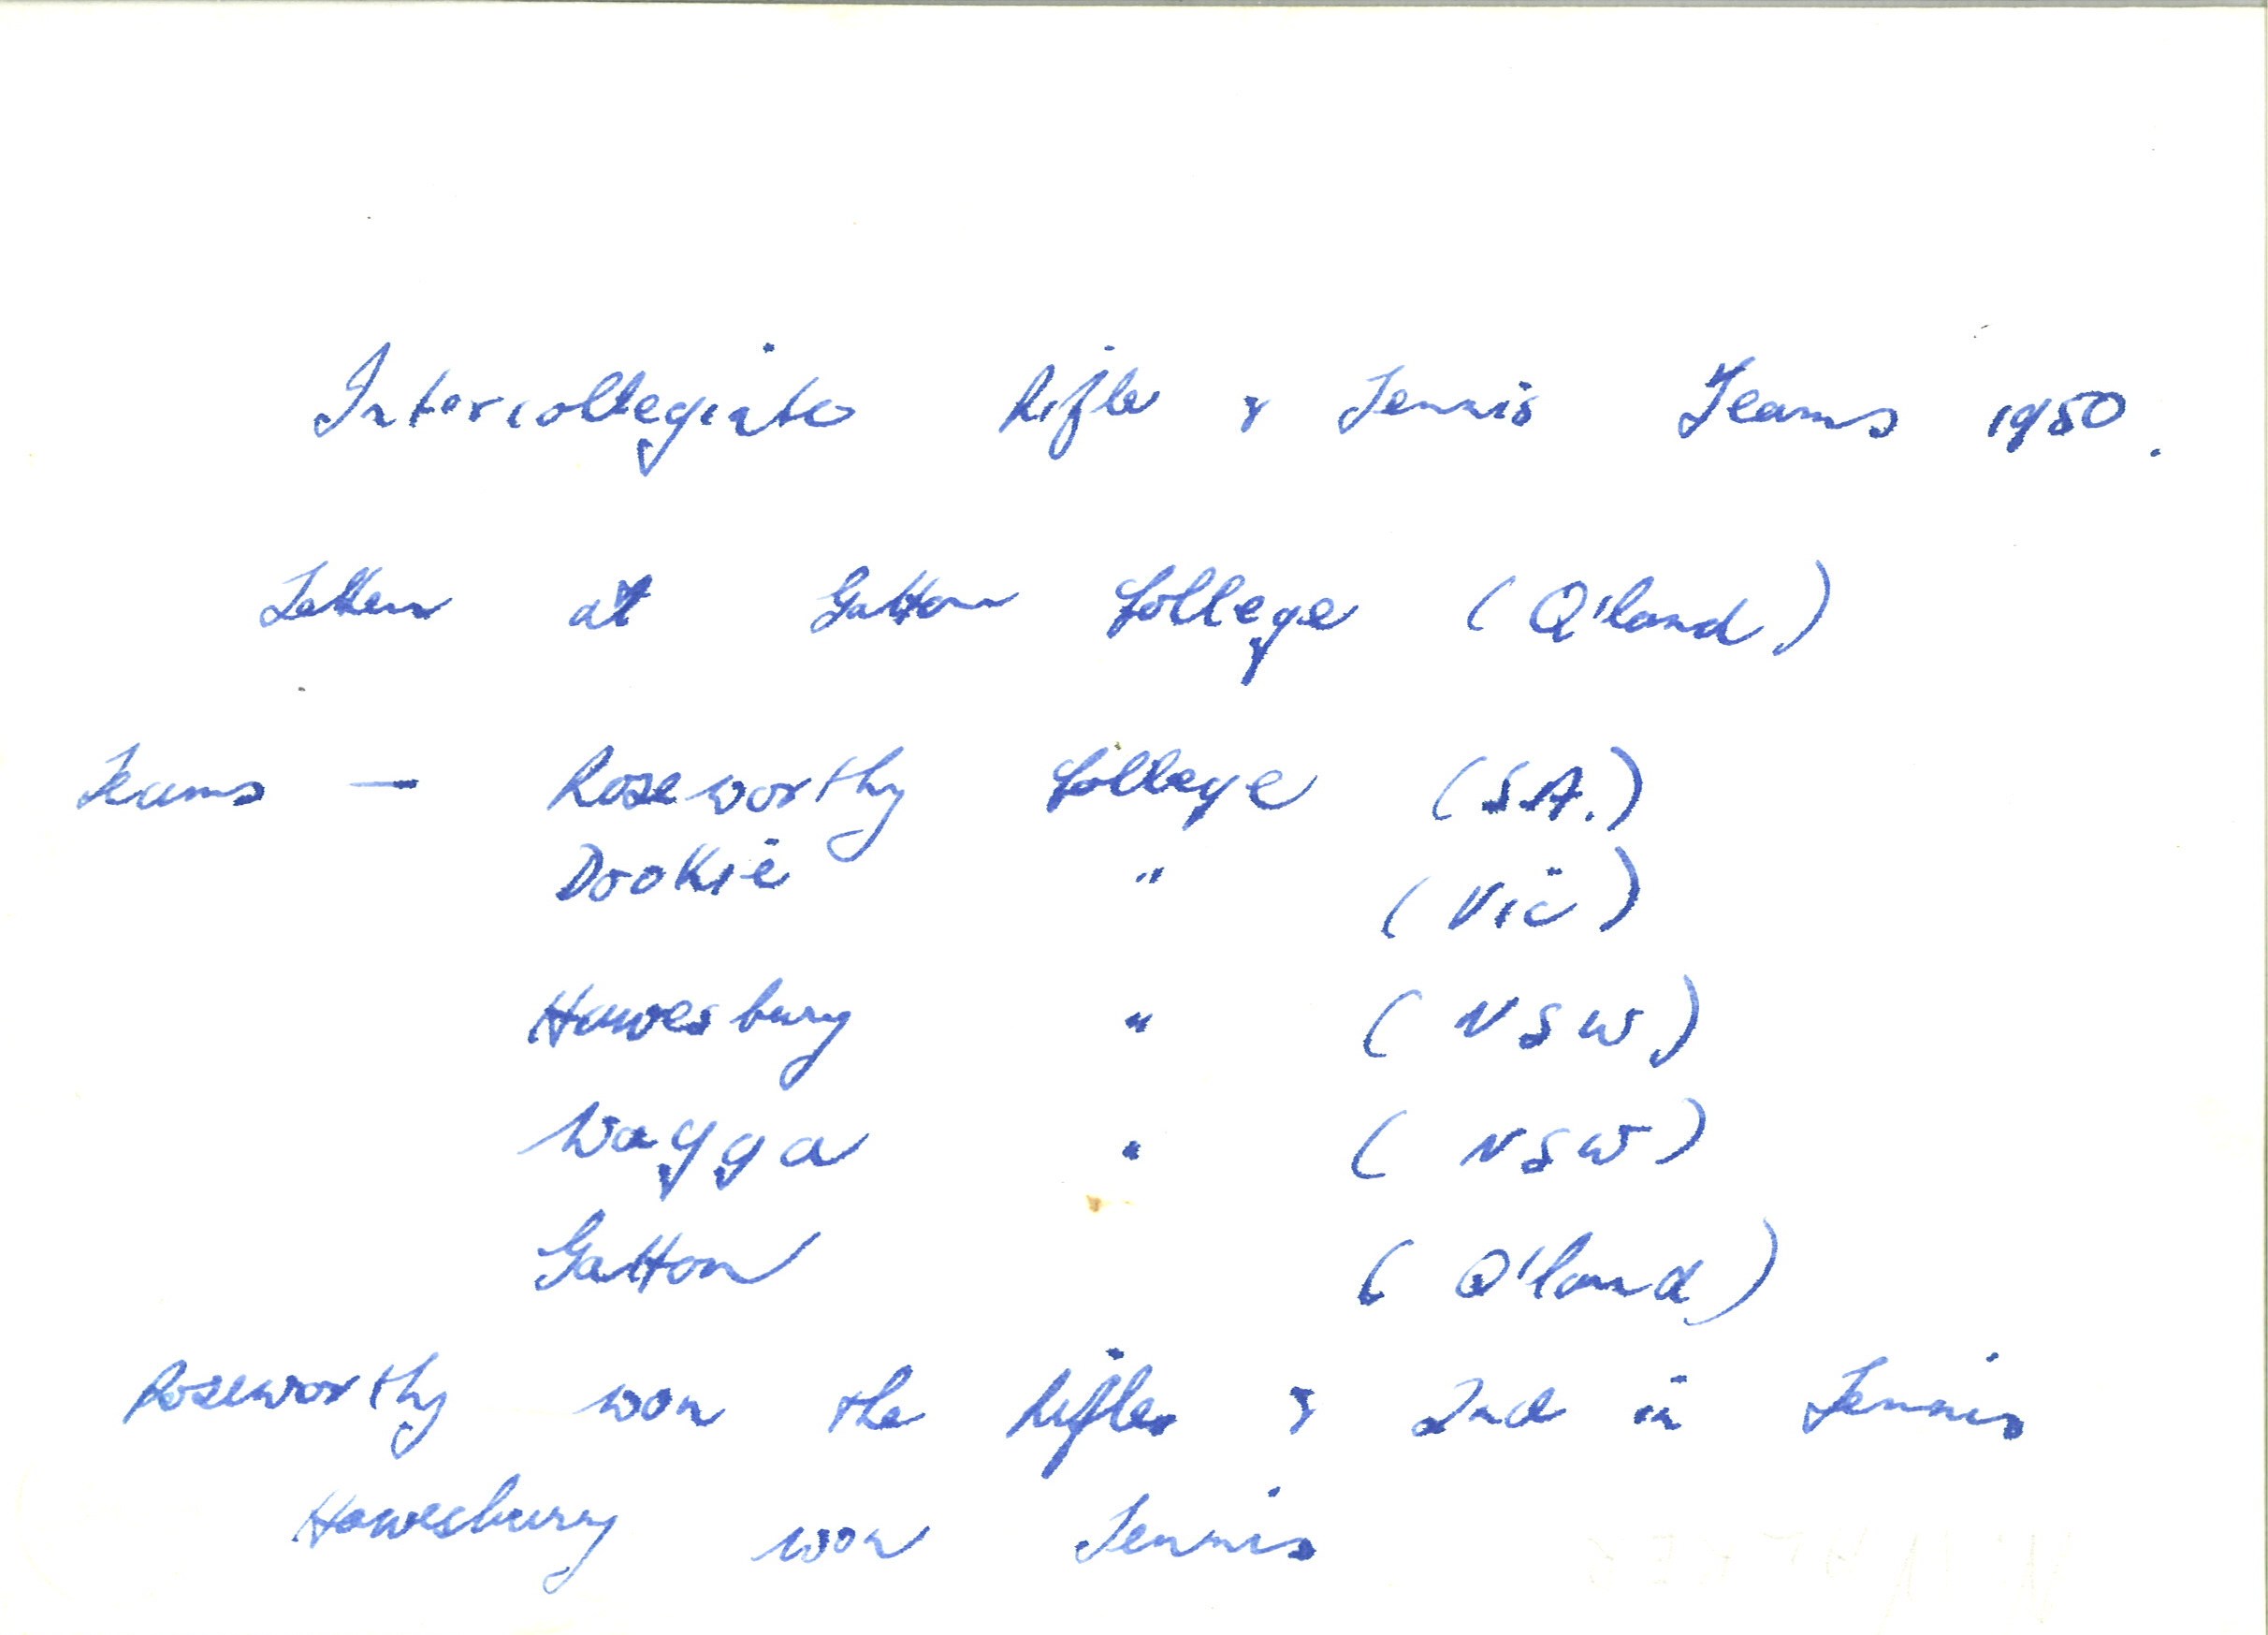 Intercollegiate Rifle & Tennis Teams 1950.
Taken at Gatton College (Q'land)
Teams — Roseworthy College (S.A.)
Dookie " (Vic)
Hawesbury " (NSW)
Wagga " (NSW)
Gatton (Q'land)
Roseworthy won the Rifles & 2nd in Tennis
Hawesbury won Tennis